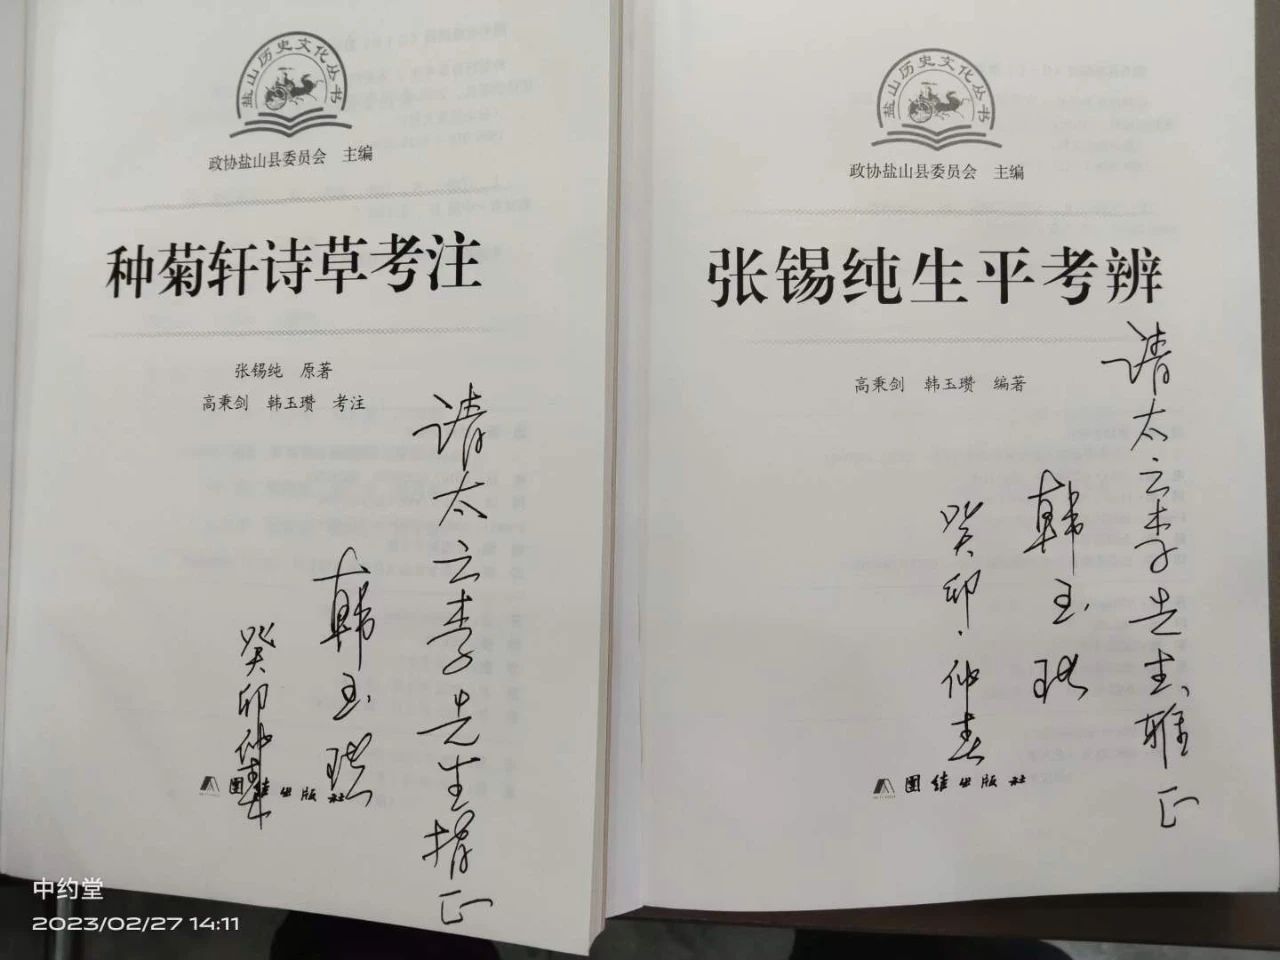 盐山历史文化丛书
政协盐山县委员会 主编
种菊轩诗草考注
张锡纯 原著
高秉剑 韩玉瓒 考注
请太云李先生指正
韩玉瓒
癸卯仲春
团结出版社
盐山历史文化丛书
政协盐山县委员会 主编
张锡纯生平考辨
高秉剑 韩玉瓒 编著
请太云李先生雅正
韩玉瓒
癸卯·仲春
团结出版社
中约堂
2023/02/27 14:11